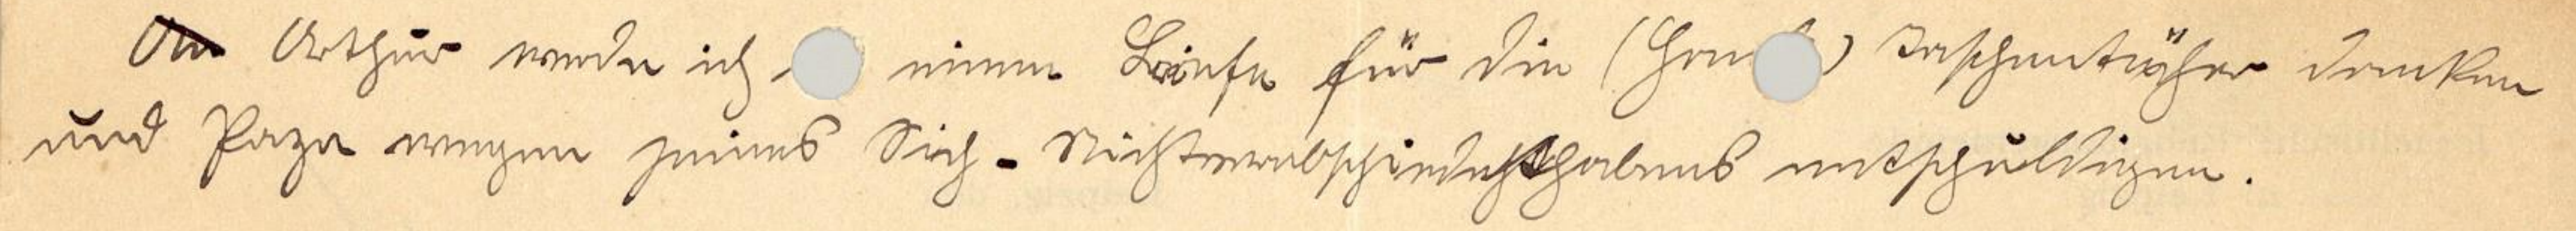 Arthur werde ich einem Briefe für die ( ) Taschentücher danken
und Paza wegen seines Sich-Nichtverabschiedethabens entschuldigen.